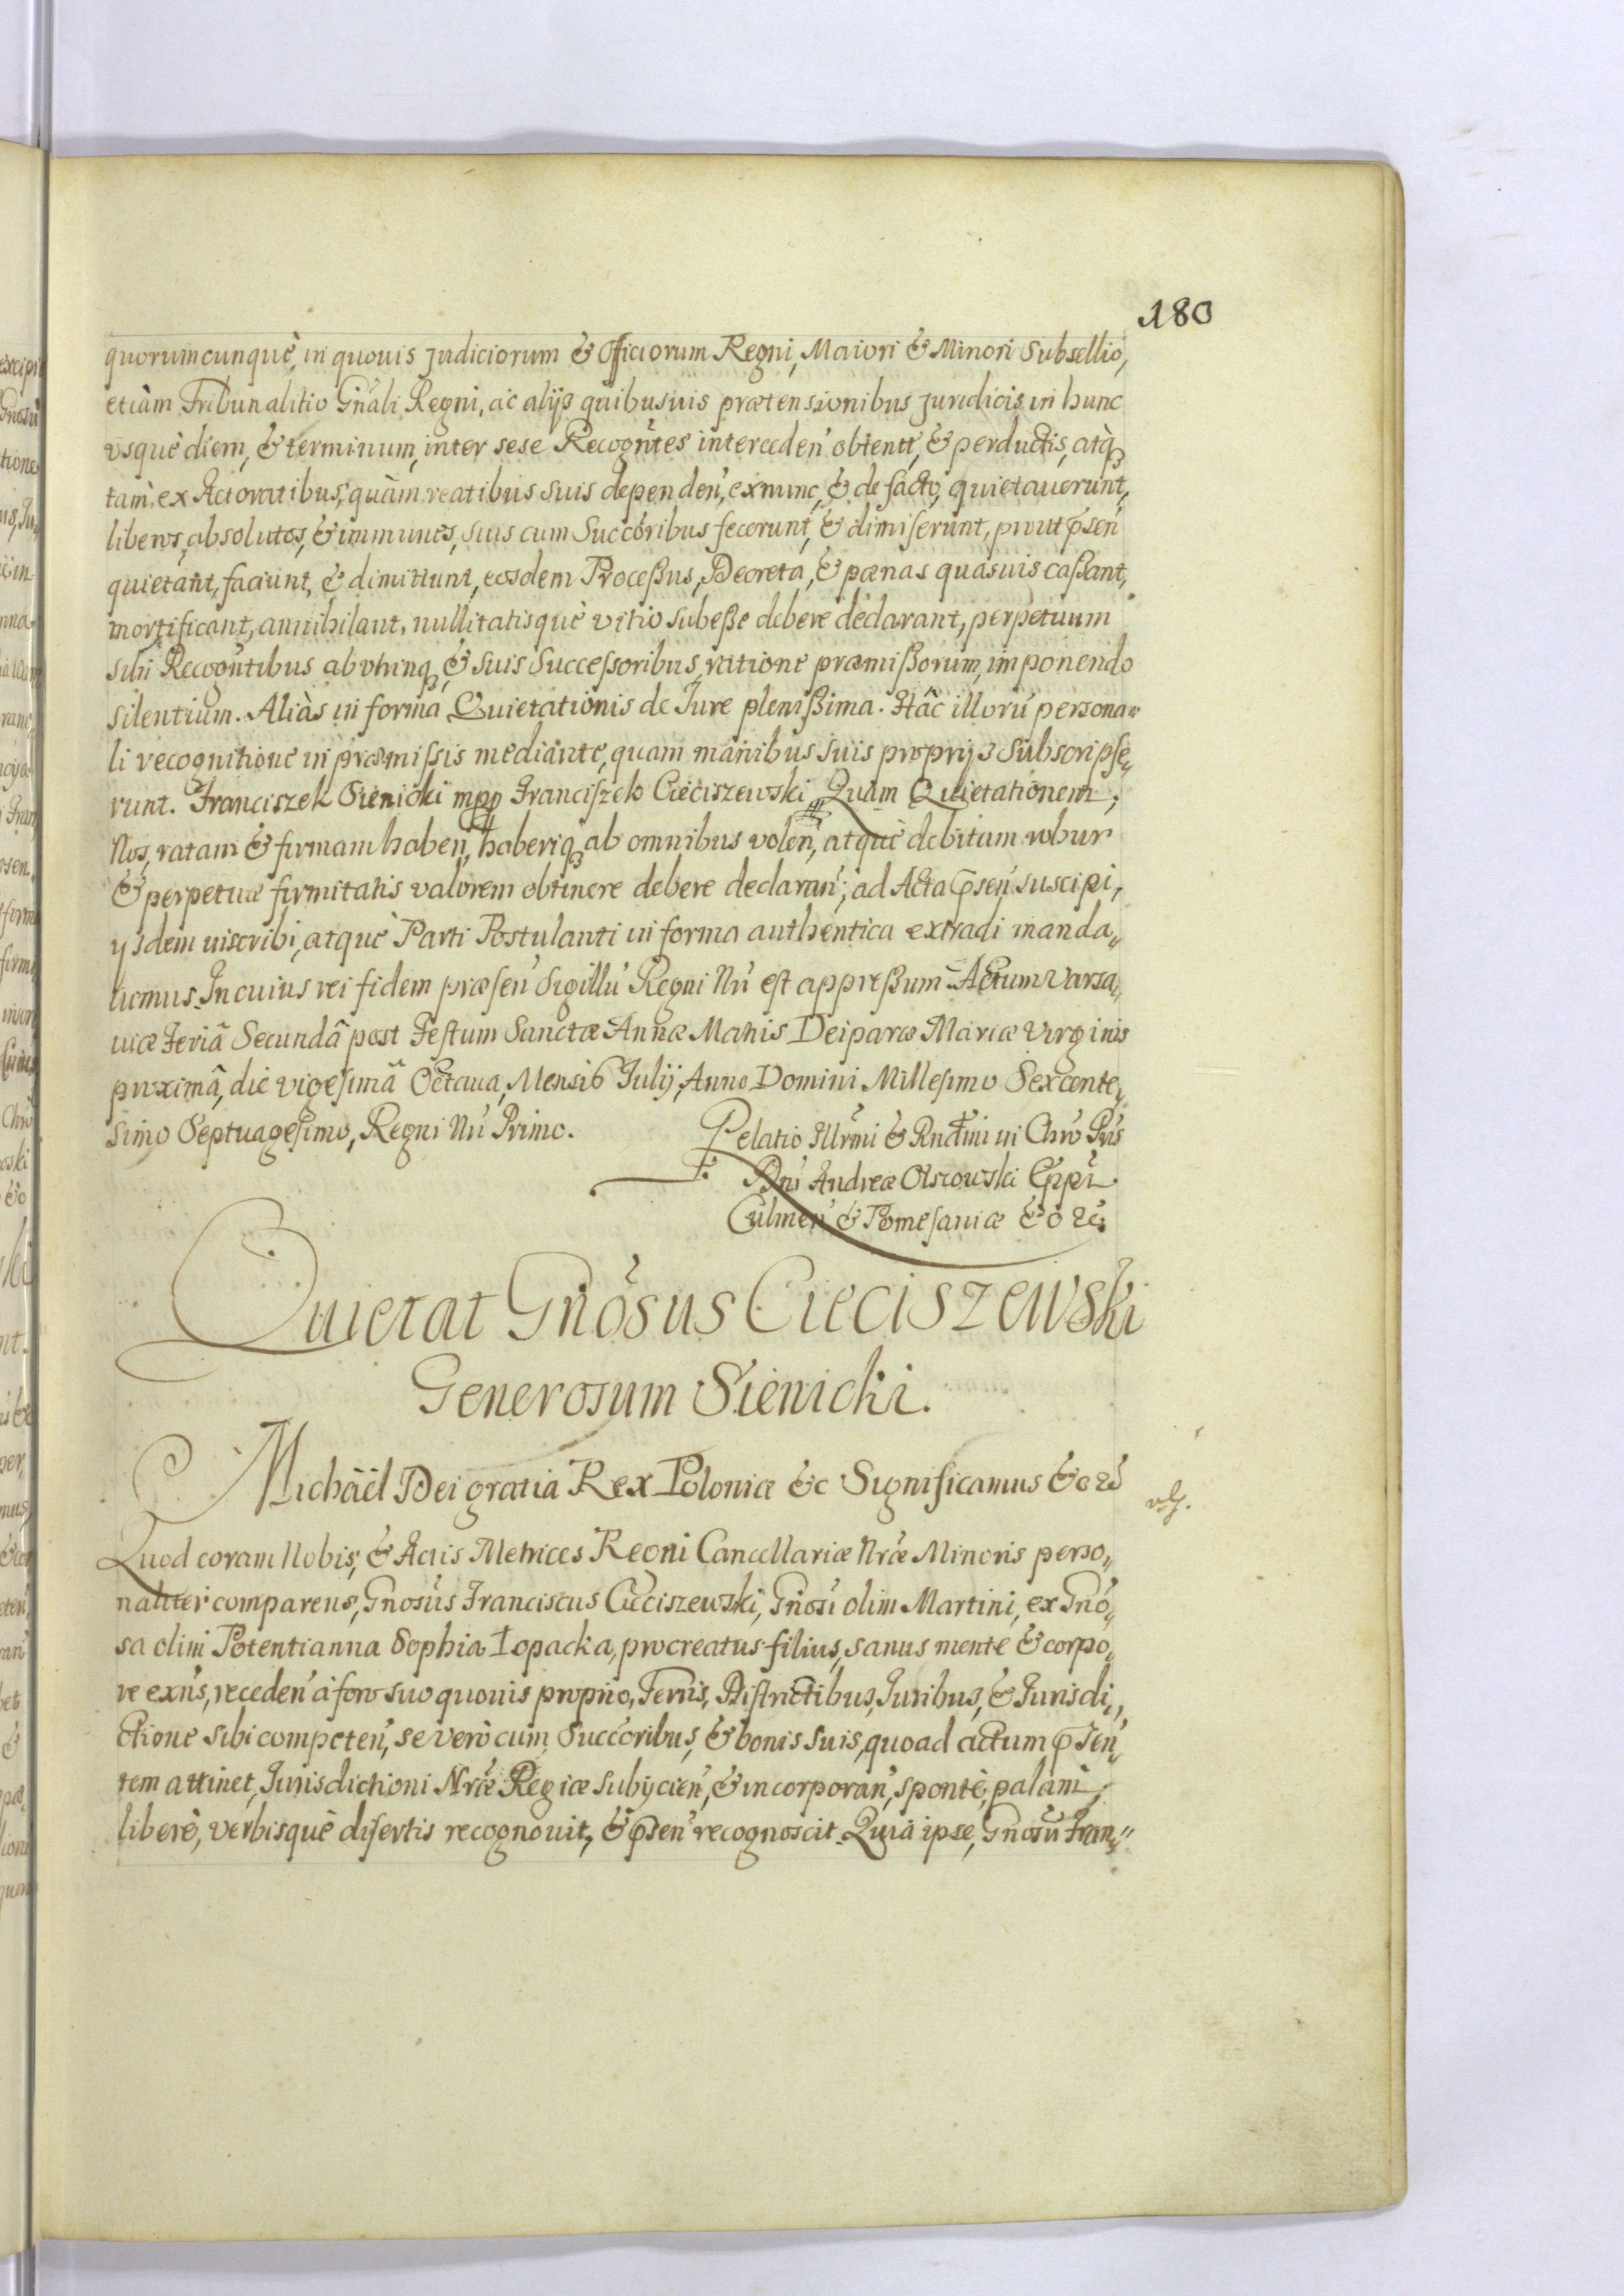 180
quorumcunquè, in quouis Judiciorum & Officiorum Regni, Maiori & Minori Subsellio,
etiàm Tribunalitio Gńali Regni, ac alijs quibusuis prætensionibus Juridicis in hunc
vsquè diem, & terminum, inter sese Recogñtes interceden̕ obtent̕, & perductis, atq̃
tam̀ ex Actoratibus, quàm reatibus suis dependen̕, exnunc, & de facto, quietauerunt,
liberos, absolutos, & immunes, suis cum Succóribus fecerunt, & dimiserunt, prout p̃sen̕
quietant, faciunt, & dimittunt, eosdem Proceßus, Decreta, & pœnas quasuis caßant,
mortificant, annihilant, nullitatisquè vitio subeße debere declarant, perpetuum
sibi Recogñtibus ab vtrinq̃, & suis Successoribus, ratione præmißorum, imponendo
silentium. Aliàs in forma Quietationis de Jure plenißima. Hâc illorũ persona„
li recognitione in præmissis mediante, quam manibus suis proprijs Subscripse„
runt. Franciszek Sienicki mpp Franciszek Cieciszewski Quam Quietationem,
Nos, ratam & firmam haben̕, haberiq̃ ab omnibus volen̕, atquè debitum robur
& perpetuæ firmitatis valorem obtinere debere declaran̕; ad Acta p̃sen̕ suscipi,
ijsdem inscribi, atquè Parti Postulanti in forma authentica extradi manda„
uimus. In cuius rei fidem præsen̕ Sigillũ Regni Nr̃i est appreßum. Actum Varsa„
uiæ Feriâ Secundâ post Festum Sanctæ Annæ Matris Deiparæ Mariæ Virginis
proximâ, die vigesimâ Octaua, Mensis Julij, Anno Domini Millesimo Sexcente„
simo Septuagesimo, Regni Nr̃i Primo.
Relatio Illr̃mi & Rnd̃mi in Chr̃o Pr̃is
Dñi Andreæ Olszowski Epp̃i
Culmen̕ & Pomesaniæ &c &c.
Quietat Gñosus Cieciszewski
Generosum Sienicki.
Michäel Dei gratia Rex Poloniæ &c Significamus &c &c
Quod coram Nobis, & Actis Metrices Regni Cancellariæ Nr̃æ Minoris perso„
naliter comparens, Gnosũs Franciscus Cieciszewski, Gnosi olim Martini, ex Gnõ„
sa olim Potentianna Sophia Lopacka, procreatus filius, sanus mente & corpo„
re exñs, receden̕ à foro suo quouis proprio, Terris, Districtibus, Juribus, & Jurisdi„
ctione sibi competen̕, se verò cum Succóribus, & bonis suis, quoad actum p̃sen„
tem attinet, Jurisdictioni Nr̃æ Regiæ subijcien̕, & incorporan̕, spontè, palam̀,
liberè, verbisquè disertis recognouit, & p̃sen̕ recognoscit. Quia ipse, Gnosũs Fran„